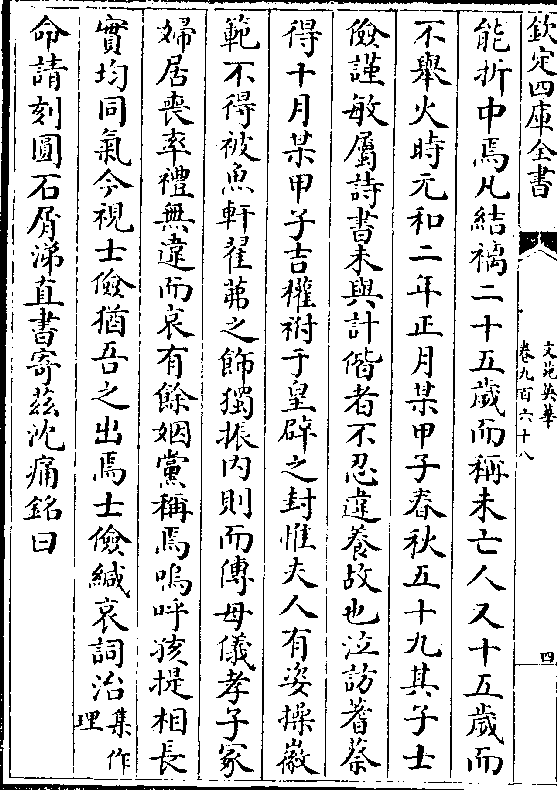 欽定四庫全書
文苑英華
卷九百六十八
四
能折中焉凡結褵二十五歲而稱未亡人又十五歲而
不舉火時元和二年正月某甲子春秋五十九其子士
儉謹敏屬詩書未與計偕者不忍違養故也泣訪蓍蔡
得十月某甲子吉權祔于皇辟之封惟夫人有姿操徽
範不得被魚軒翟茀之飾獨振內則而傳母儀孝子冢
婦居喪率禮無違而哀有餘姻黨稱焉嗚呼孩提相長
實均同氣今視士儉猶吾之出焉士儉緘哀詞治集作理
命請刻圓石屑涕直書寄茲沈痛銘曰